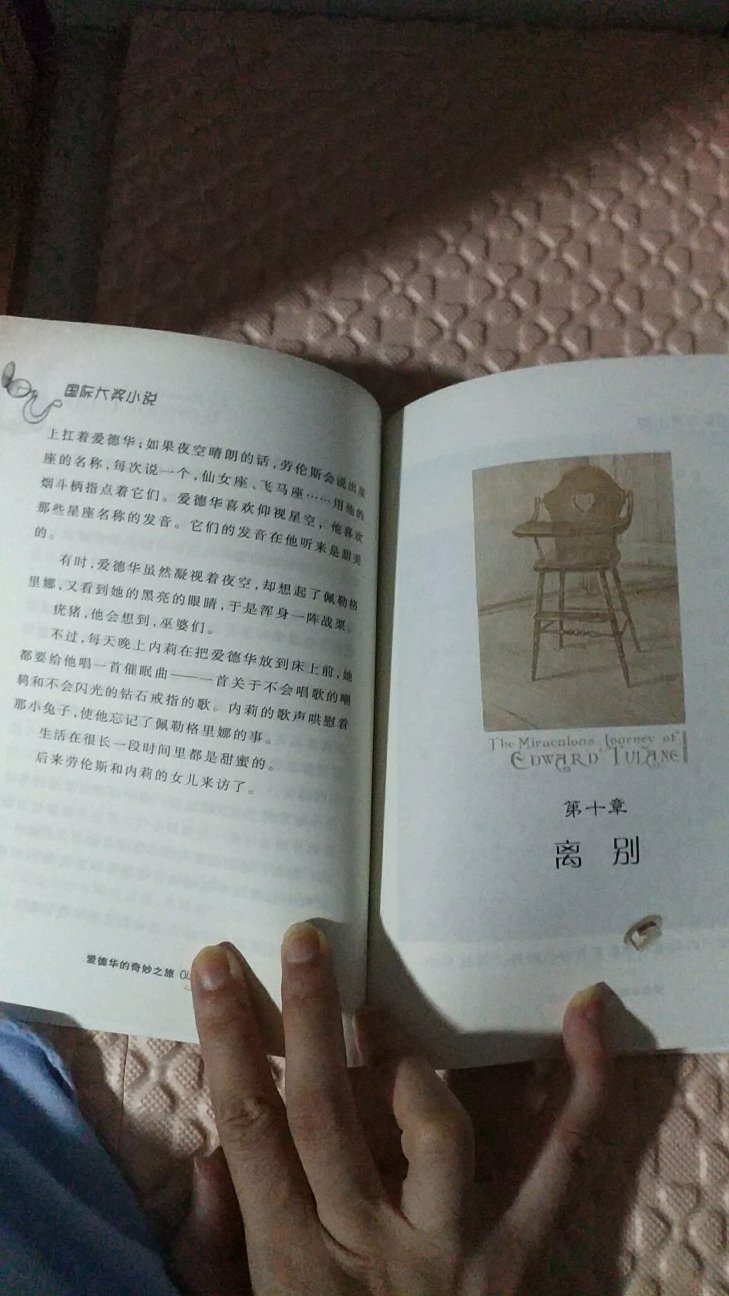 国际大奖小说
上扛着爱德华；如果夜空晴朗的话，劳伦斯会说出星
座的名称，每次说一个，仙女座、飞马座……用他的
烟斗柄指点着它们。爱德华喜欢仰视星空，他喜欢
那些星座名称的发音。它们的发音在他听来是甜美
的。
有时，爱德华虽然凝视着夜空，却想起了佩勒格
里娜，又看到她的黑亮的眼睛，于是浑身一阵战栗。
疣猪，他会想到，巫婆们。
不过，每天晚上内莉在把爱德华放到床上前，她
都要给他唱一首催眠曲——一首关于不会唱歌的嘲
鸫和不会闪光的钻石戒指的歌。内莉的歌声哄慰着
那小兔子，使他忘记了佩勒格里娜的事。
生活在很长一段时间里都是甜蜜的。
后来劳伦斯和内莉的女儿来访了。
爱德华的奇妙之旅
The Miraculous Journey of
EDWARD TULANE
第十章
离 别